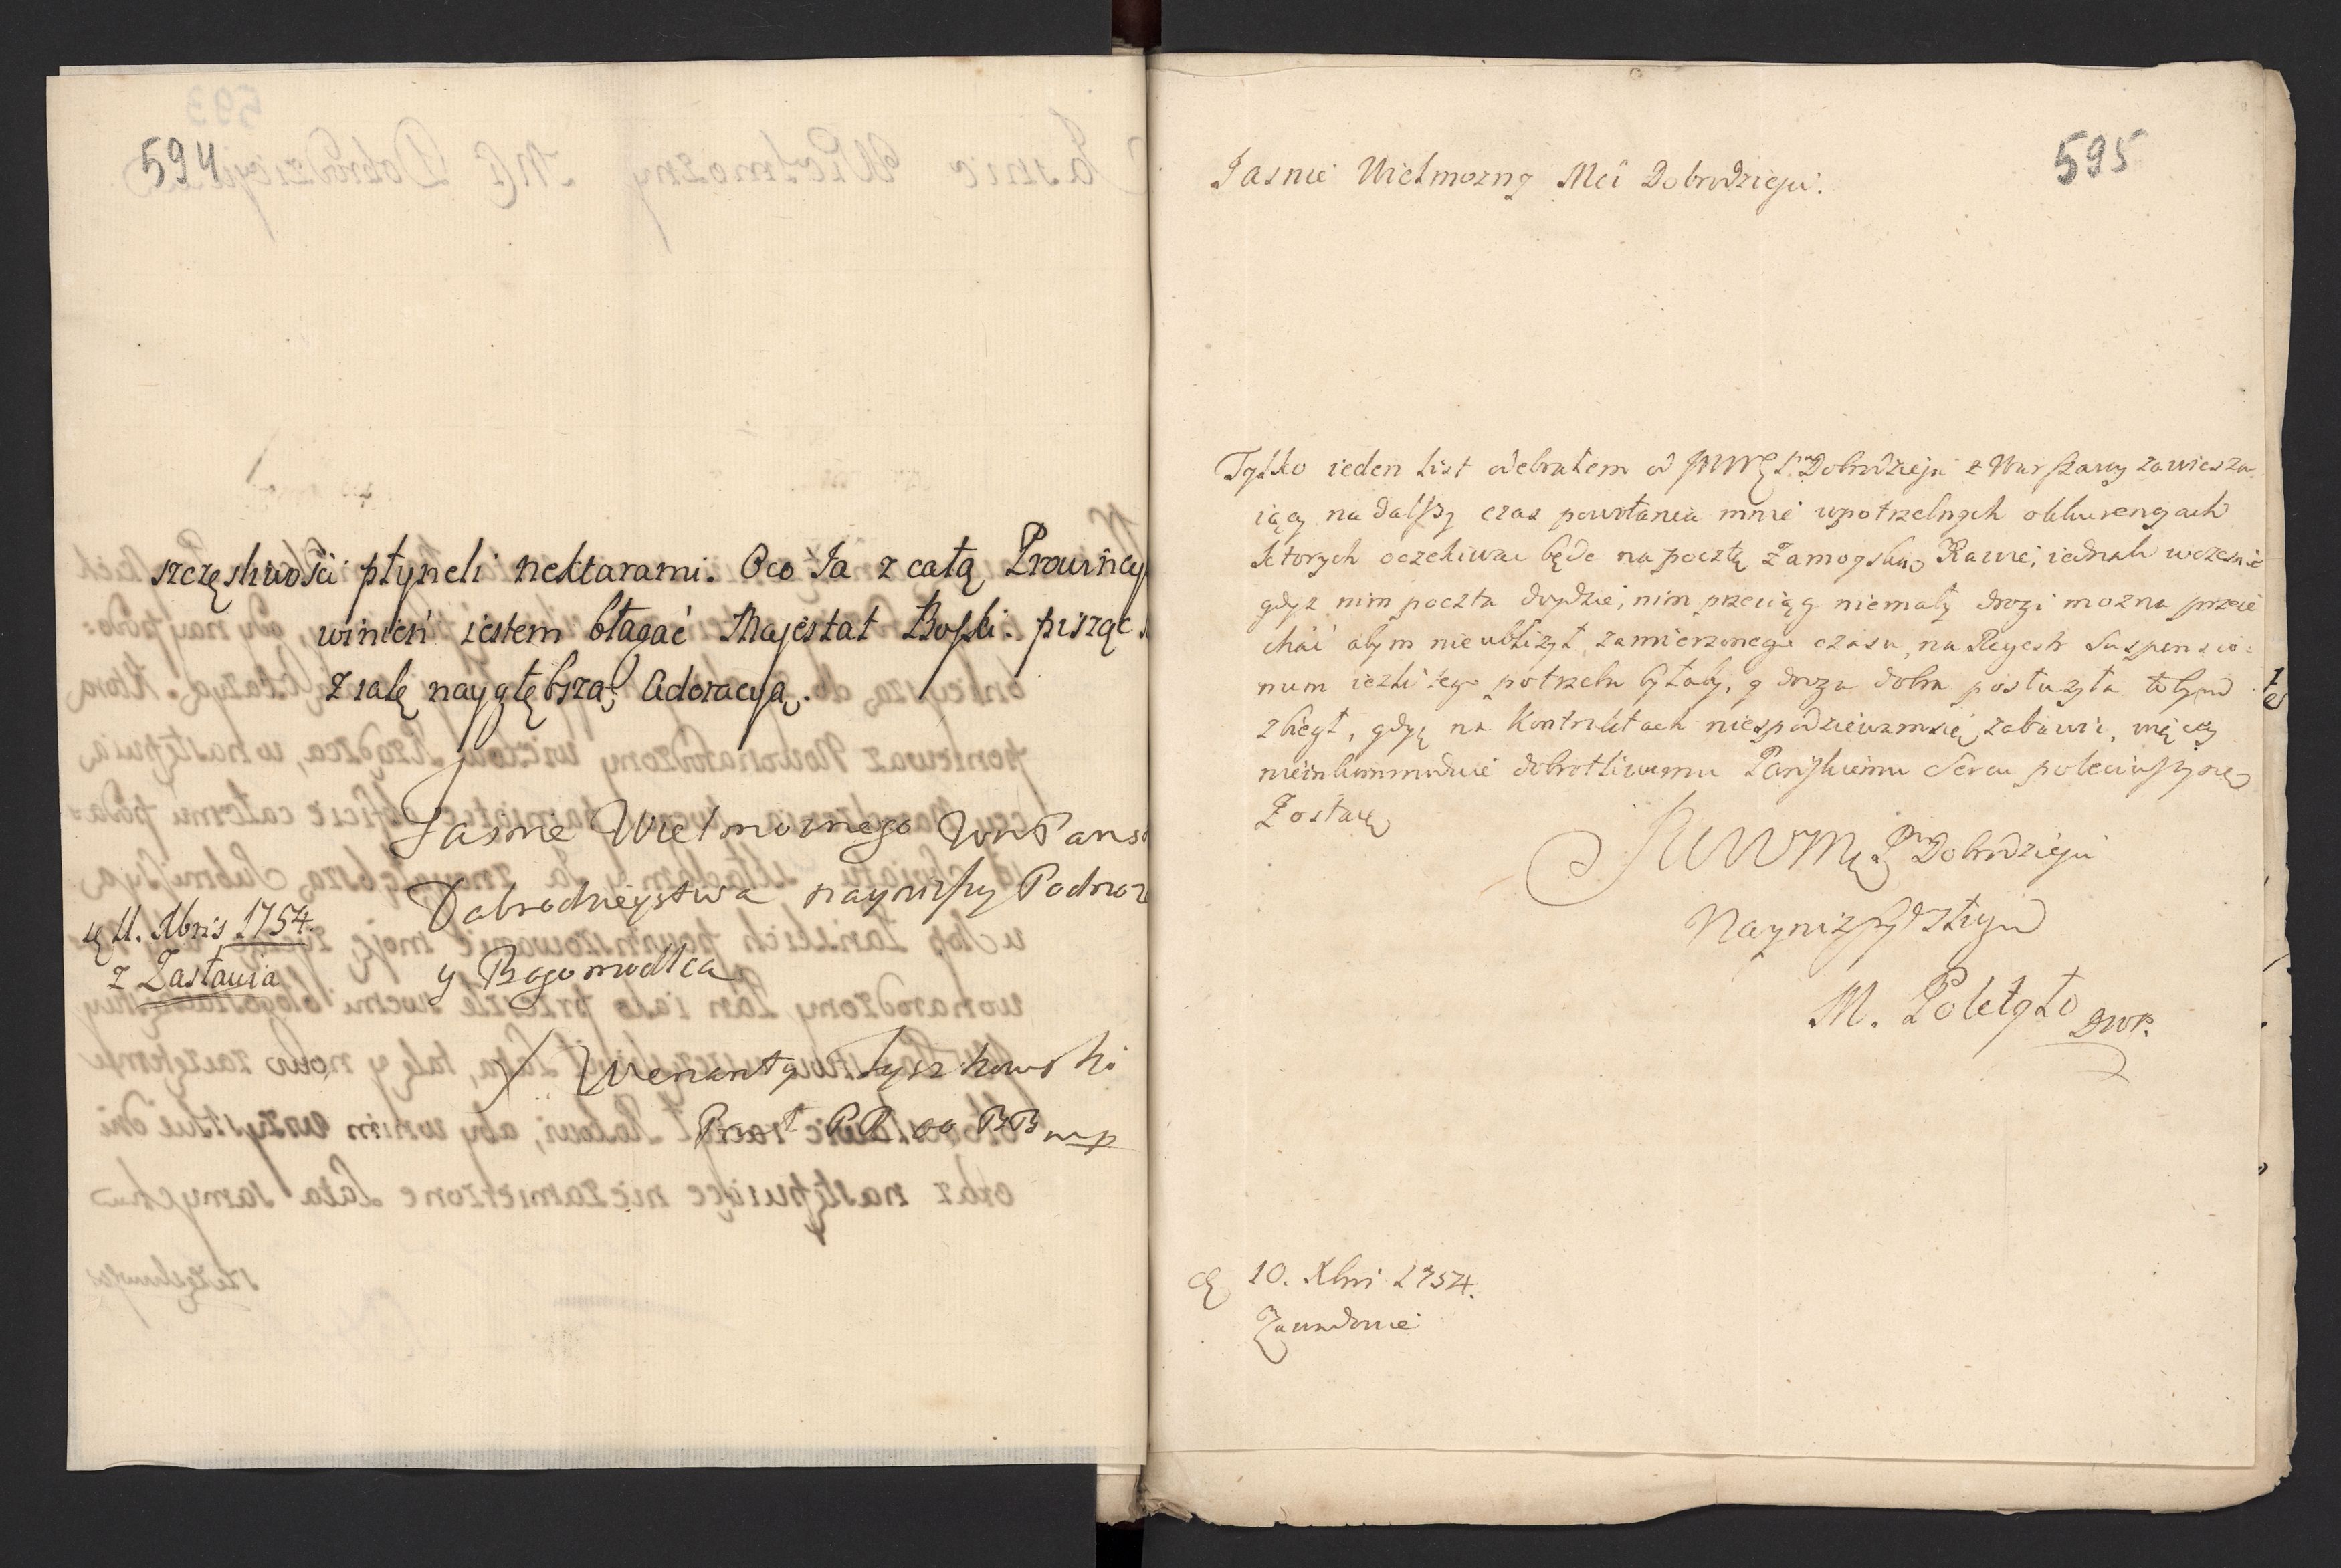 594
szczęsliwości płyneli nektarami. Oco Ja z całą Prowincy
winień iestem błagać Majestat Boski. pisząc
z całę naygłębszą Adoracyą.
Jasnie Wielmoznego WmPans
Dobrodzieystwa nayniszy Podnoz
y Bogomodlca
X Wenanty Tyszkowski
11. Xbris 1754.
z Zasławia
595
Jasnie Wielmozny Mci Dobrodzieju.
Tylko ieden list odebrałem od JWWM Pª Dobrodzieja z Warszawy zawiesza
iący na dalszy czas powołania mnie w potrzebnych okkurencyach
ktorych oczekiwac będe na pocztę Zamoyską w Rawie, iednak wczesnie
gdyz nim poczta doydzie, nim przeciąg niemały drogi mozna przeie
chać abym nie ubliżył zamierzonego czasu, na Reyestr Suspensio=
num iezli tego potrzeba byłaby, y droga dobra posłuzyła tobym
zbiegł, gdyż na Kontraktach niespodziewamsię zabawić, więcey
nieinkommoduię dobrotliwemu Pańskiemu Sercu poleciwszy się
Zostaię
JWWM Pª Dobrodzieja
Nayniższy Sługa
M. Poletyło
10. Xbri 1754.
Zawadowie